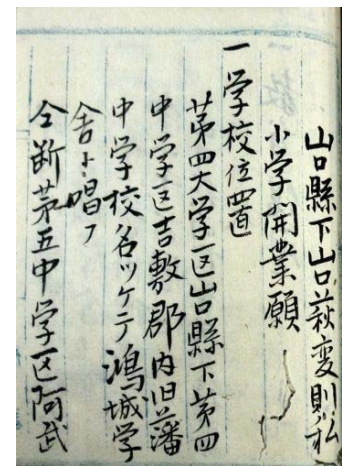 山口縣下山口萩変則私
小学開業願
一学校位置
苐四大学区山口縣下苐四
中学区吉敷郡内旧藩
中学校名ツケテ鴻城学
舎ト唱フ
仝断苐五中学区阿武